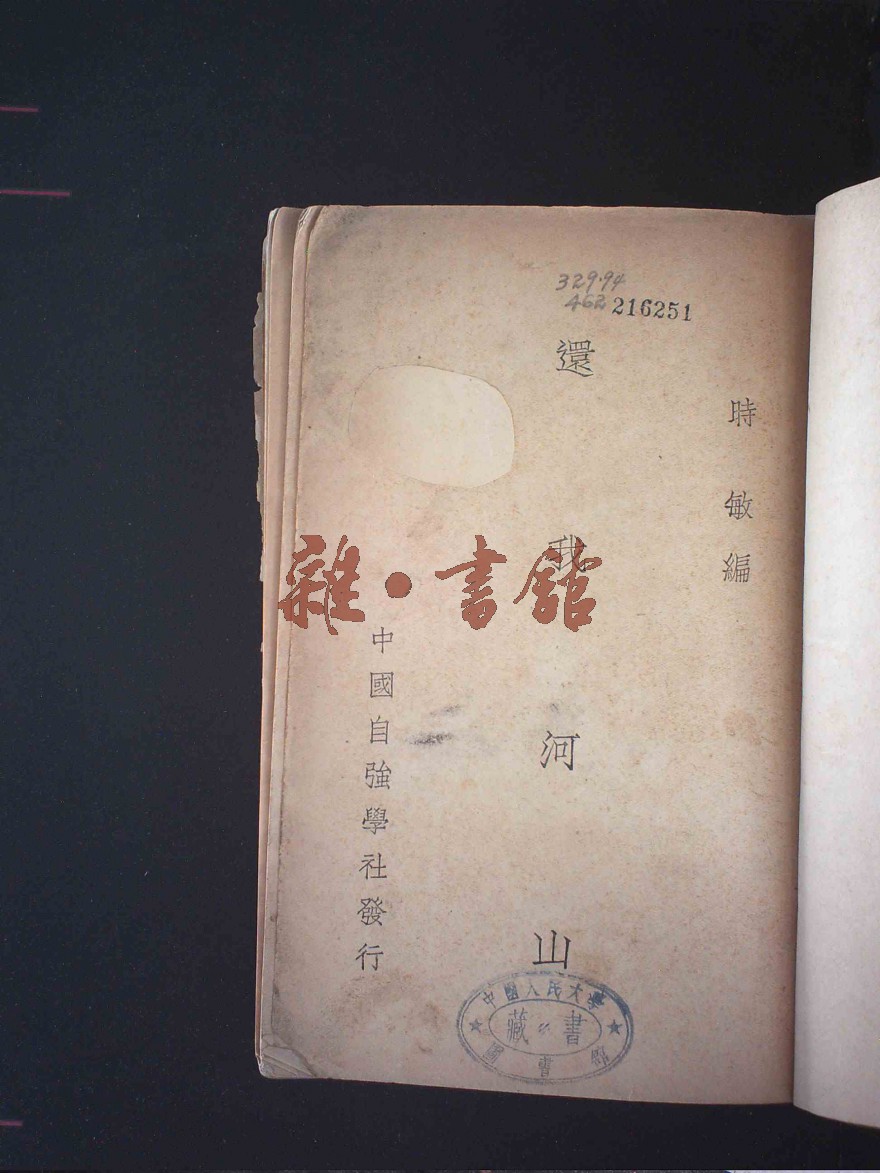 329.94
462 216251
時敏編
還我河山
中國自強學社發行
雜·書館
中國人民大學
藏書
圖書館